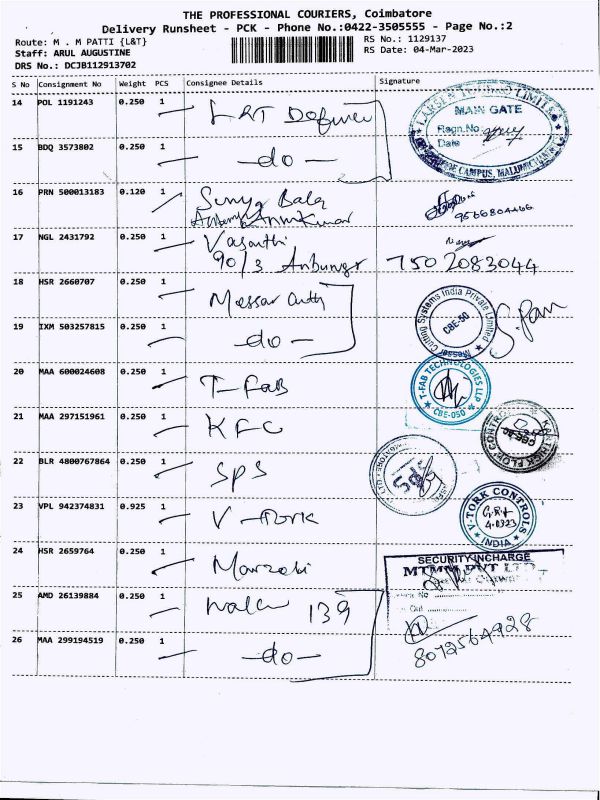 THE PROFESSIONAL COURIERS, Coimbatore
Delivery Runsheet - PCK - Phone No.:0422-3505555 - Page No.:2
Route: M . M PATTI {L&T}
RS No.: 1129137
Staff: ARUL AUGUSTINE
RS Date: 04-Mar-2023
DRS No.: DCJB112913702
S No Consignment No Weight PCS Consignee Details Signature
14 POL 1191243 0.250 1 L&T Defence
LARSEN LIMITED
MAIN GATE
Regn.No
Date
CAMPUS, MALUMICHAM
15 BDQ 3573802 0.250 1 -do-
16 PRN 500013183 0.120 1 Surya Bala
9566804466
17 NGL 2431792 0.250 1 Vasanthi
90/3 Anbunagr 7502083044
18 HSR 2660707 0.250 1 Messar Cutt
Messer Cutting Systems India Private Limited
CBE-50
19 IXM 503257815 0.250 1 -do-
20 MAA 600024608 0.250 1 T-FAB
T-FAB TECHNOLOGIES LLP
CBE-050
21 MAA 297151961 0.250 1 KFC
FLOW CONTROL
22 BLR 4800767864 0.250 1 SPS
SPS
23 VPL 942374831 0.925 1 V-Tork
V-TORK CONTROLS
INDIA
24 HSR 2659764 0.250 1
SECURITY INCHARGE
MTMM PVT LTD
25 AMD 26139884 0.250 1 139
Out
26 MAA 299194519 0.250 1 -do-
8072564928